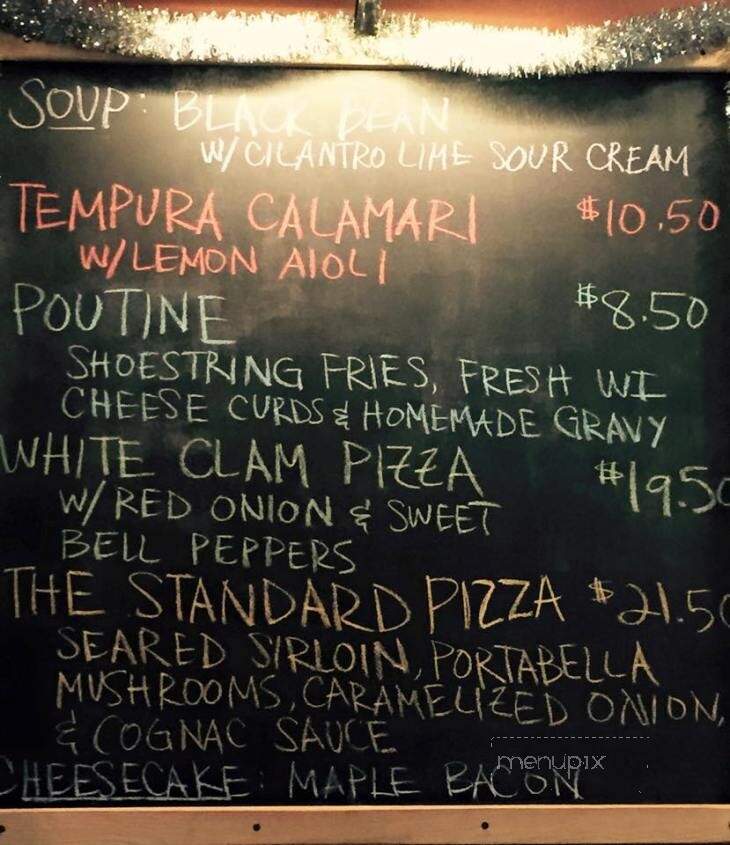 SOUP: BLACK BEAN
W/ CILANTRO LIME SOUR CREAM
TEMPURA CALAMARI $10.50
W/ LEMON AIOLI
POUTINE $8.50
SHOESTRING FRIES, FRESH WI
CHEESE CURDS & HOMEMADE GRAVY
WHITE CLAM PIZZA $19.50
W/ RED ONION & SWEET
BELL PEPPERS
THE STANDARD PIZZA $21.50
SEARED SIRLOIN, PORTABELLA
MUSHROOMS, CARAMELIZED ONION,
& COGNAC SAUCE
menupix
CHEESECAKE: MAPLE BACON